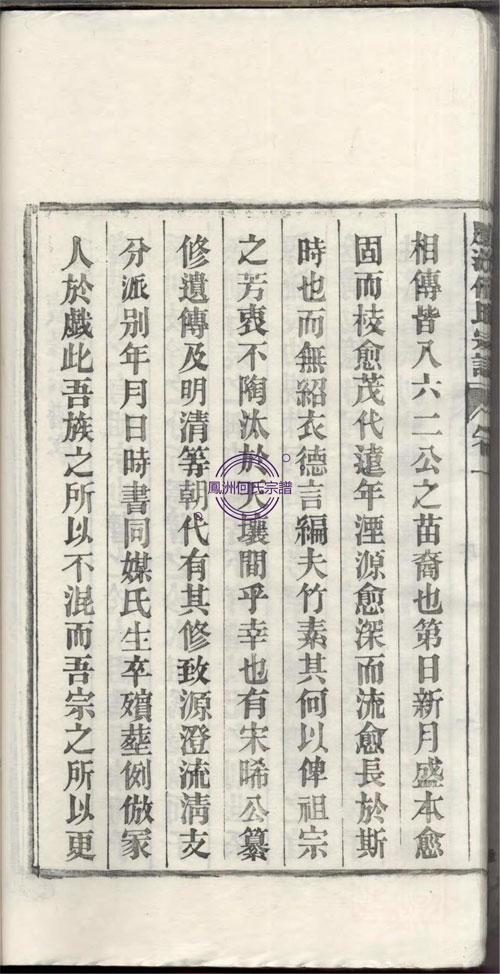 相傳皆入六二公之苗裔也第日新月盛本愈
固而枝愈茂代遠年湮源愈深而流愈長於斯
時也而無紹衣德言編夫竹素其何以俾祖宗
之芳衷不陶汰於天壤間乎幸也有宋晞公纂
修遺傳及明清等朝代有其修致源澄流清支
分派别年月日時書同媒氏生卒殯塟例倣冢
人於戯此吾族之所以不混而吾宗之所以更
鳳洲何氏宗譜